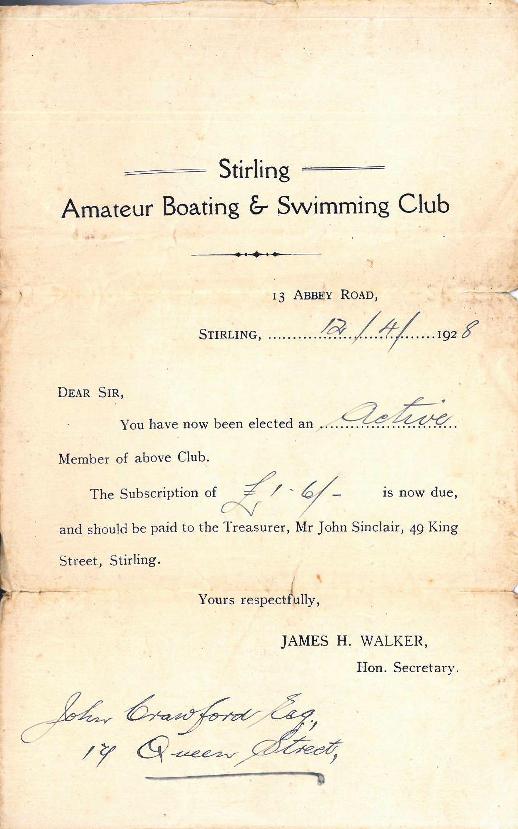 Stirling
Amateur Boating & Swimming Club
13 ABBEY ROAD,
STIRLING, 12/4/ 1928
DEAR SIR,
You have now been elected an Active
Member of above Club.
The Subscription of £1-6/- is now due,
and should be paid to the Treasurer, Mr John Sinclair, 49 King
Street, Stirling.
Yours respectfully,
JAMES H. WALKER,
Hon. Secretary.
John Crawford Esq,
Queen Street,